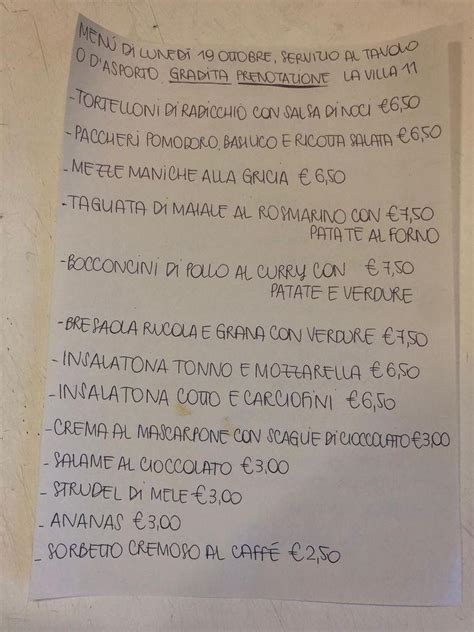 MENÚ DI LUNEDÍ 19 OTTOBRE, SERVIZIO AL TAVOLO
O D'ASPORTO, GRADITA PRENOTAZIONE LA VILLA 11
-TORTELLONI DI RADICCHIO CON SALSA DI NOCI €6,50
-PACCHERI POMODORO, BASILICO E RICOTTA SALATA €6,50
-MEZZE MANICHE ALLA GRICIA €6,50
-TAGLIATA DI MAIALE AL ROSMARINO CON €7,50
PATATE AL FORNO
-BOCCONCINI DI POLLO AL CURRY CON €7,50
PATATE E VERDURE
-BRESAOLA RUCOLA E GRANA CON VERDURE €7,50
-INSALATONA TONNO E MOZZARELLA €6,50
-INSALATONA COTTO E CARCIOFINI €6,50
-CREMA AL MASCARPONE CON SCAGLIE DI CIOCCOLATO €3,00
-SALAME AL CIOCCOLATO €3,00
- STRUDEL DI MELE €3,00
- ANANAS €3,00
- SORBETTO CREMOSO AL CAFFÉ €2,50